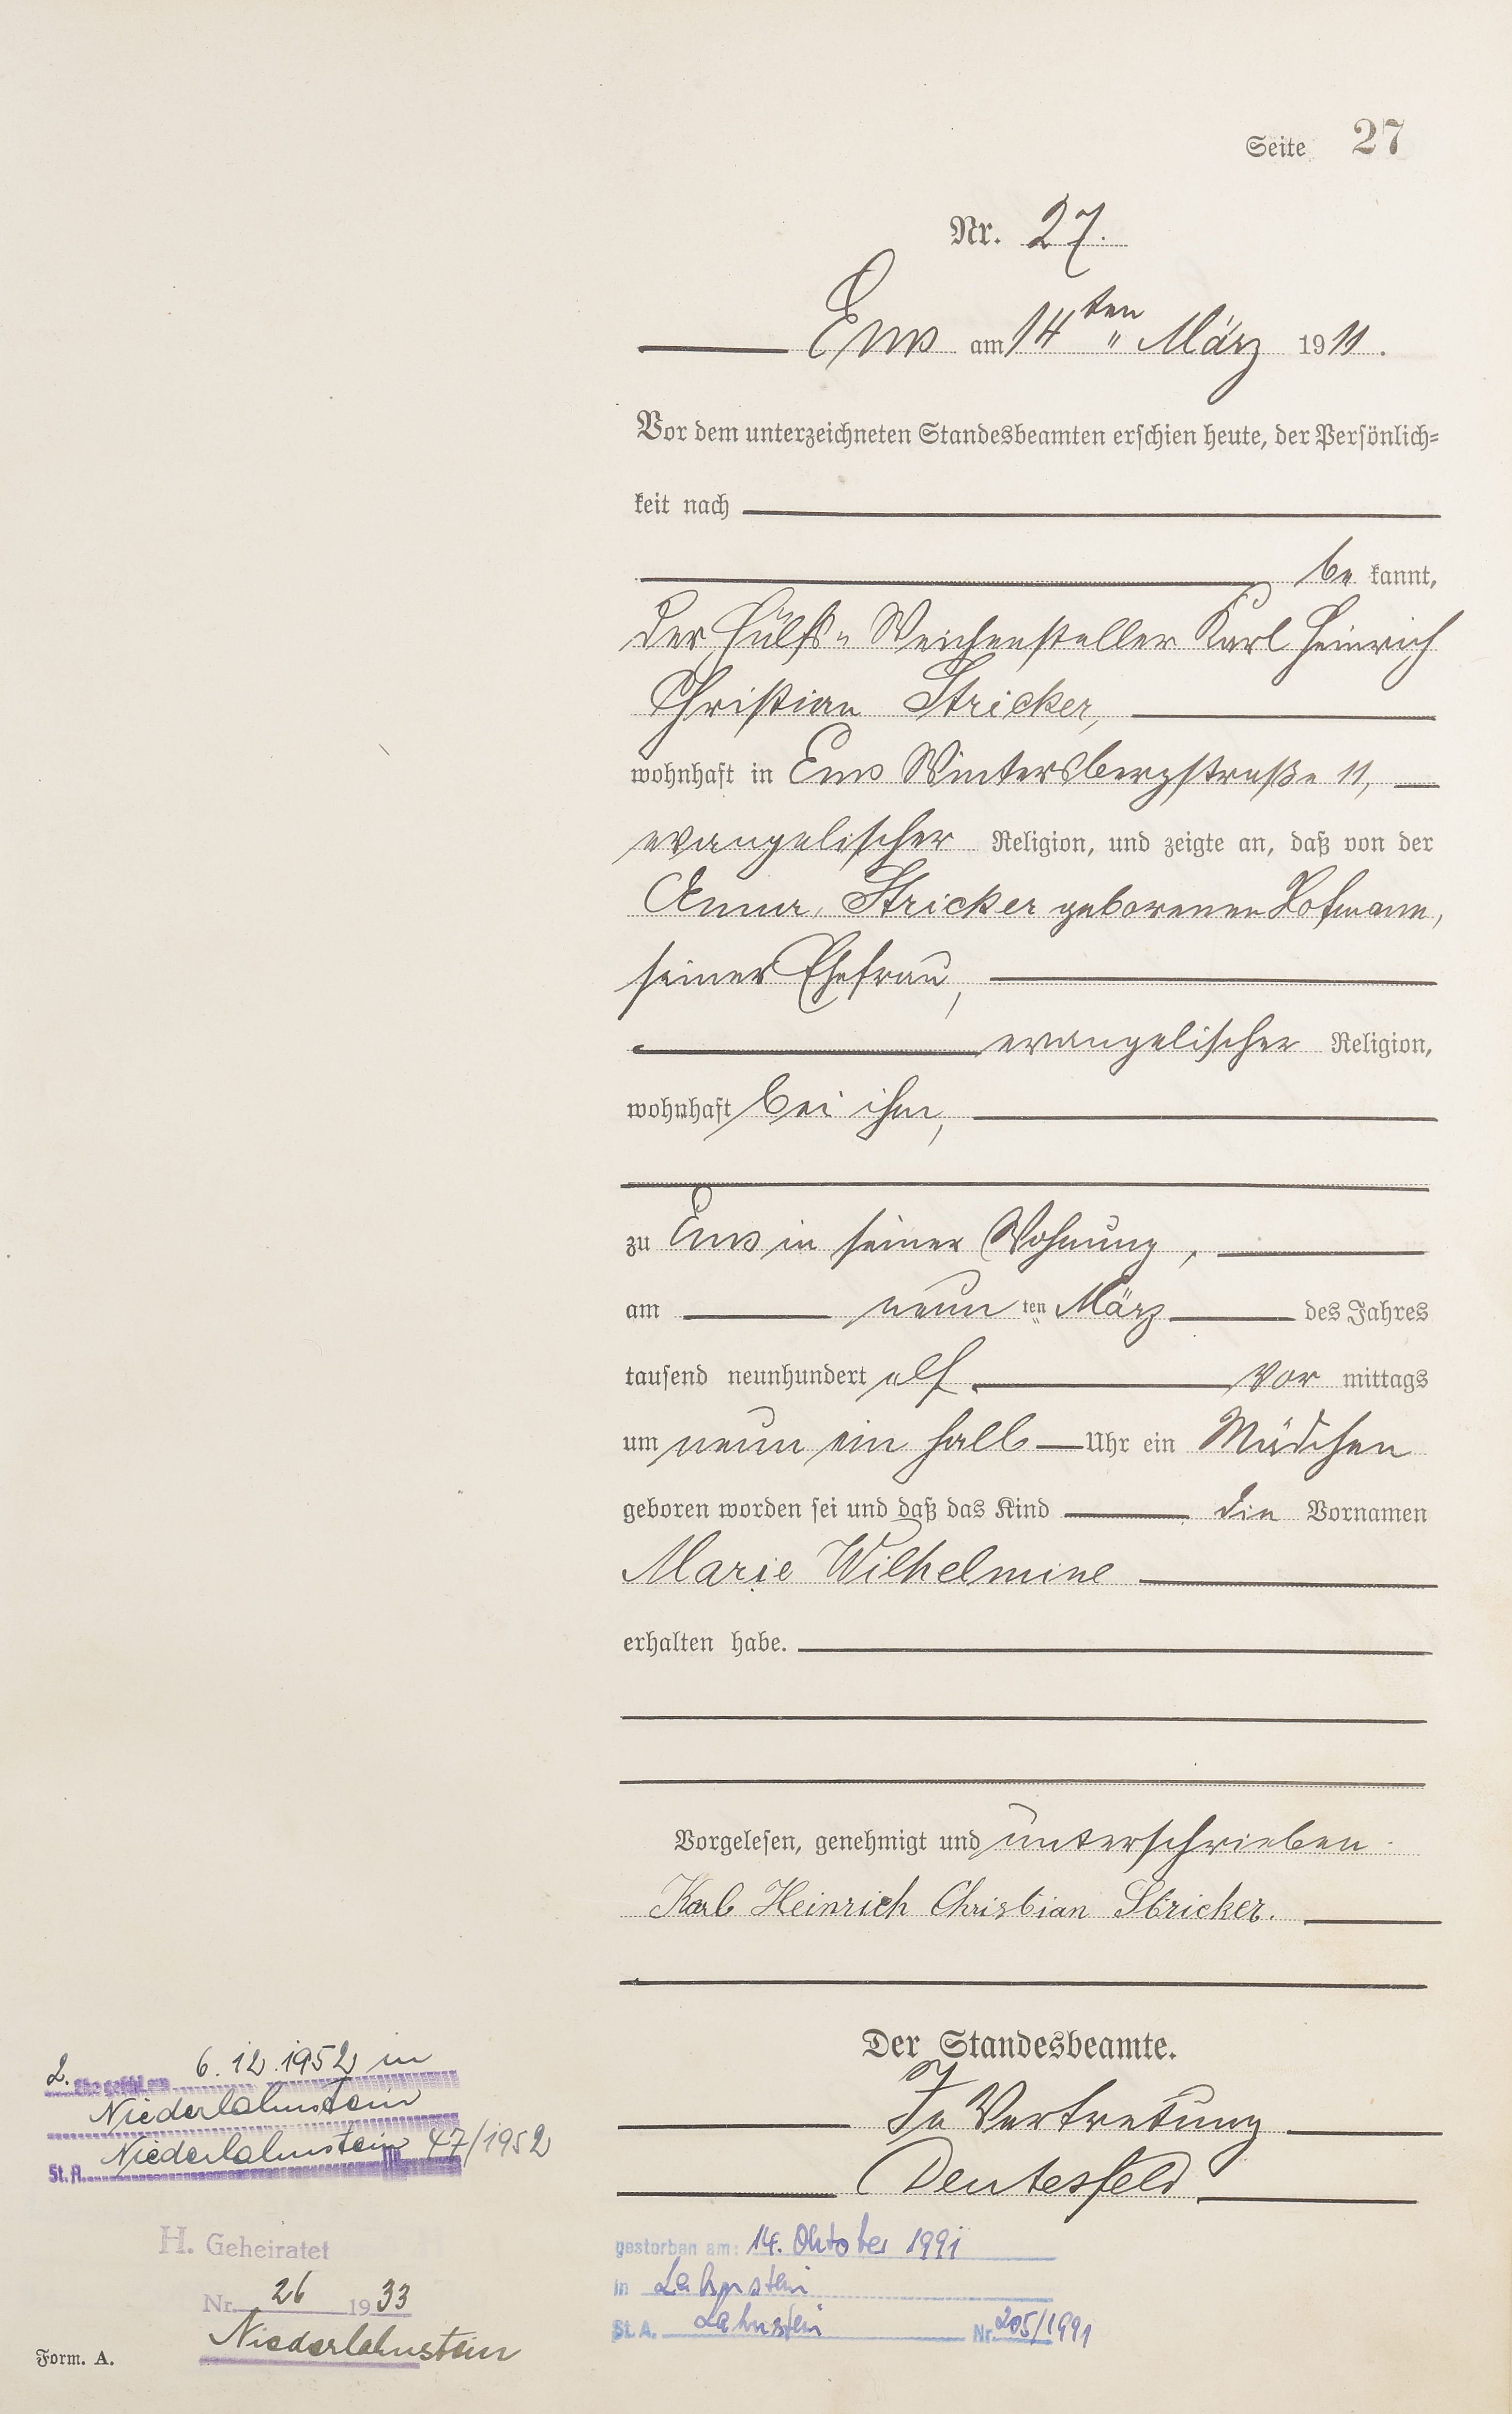 Seite 27
Nr. 27.
Ems am 14ten März 1911.
Vor dem unterzeichneten Standesbeamten erschien heute, der Persönlich=
keit nach
be kannt,
der Hülfs= Weichensteller Karl Heinrich
Christian Stricker,
wohnhaft in Ems Wintersbergstraße 11,
evangelischer Religion, und zeigte an, daß von der
Anna Stricker geborenen Hofmann,
seiner Ehefrau,
evangelischer Religion,
wohnhaft bei ihm,
zu Ems in seiner Wohnung,
am neun ten März des Jahres
tausend neunhundert elf vor mittags
um neun ein halb Uhr ein Mädchen
geboren worden sei und daß das Kind die Vornamen
Marie Wilhelmine
erhalten habe.
Vorgelesen, genehmigt und unterschrieben
Karl Heinrich Christian Stricker.
Der Standesbeamte.
In Vertretung
Deutesfeld
2. Ehe geschl. am 6. 12. 1952 in
Niederlahnstein
St. A. Niederlahnstein 47/1952
H. Geheiratet
Nr. 26 1933
Niederlahnstein
gestorben am: 14. Oktober 1991
in Lahnstein
St. A. Lahnstein Nr. 205/1991
Form. A.